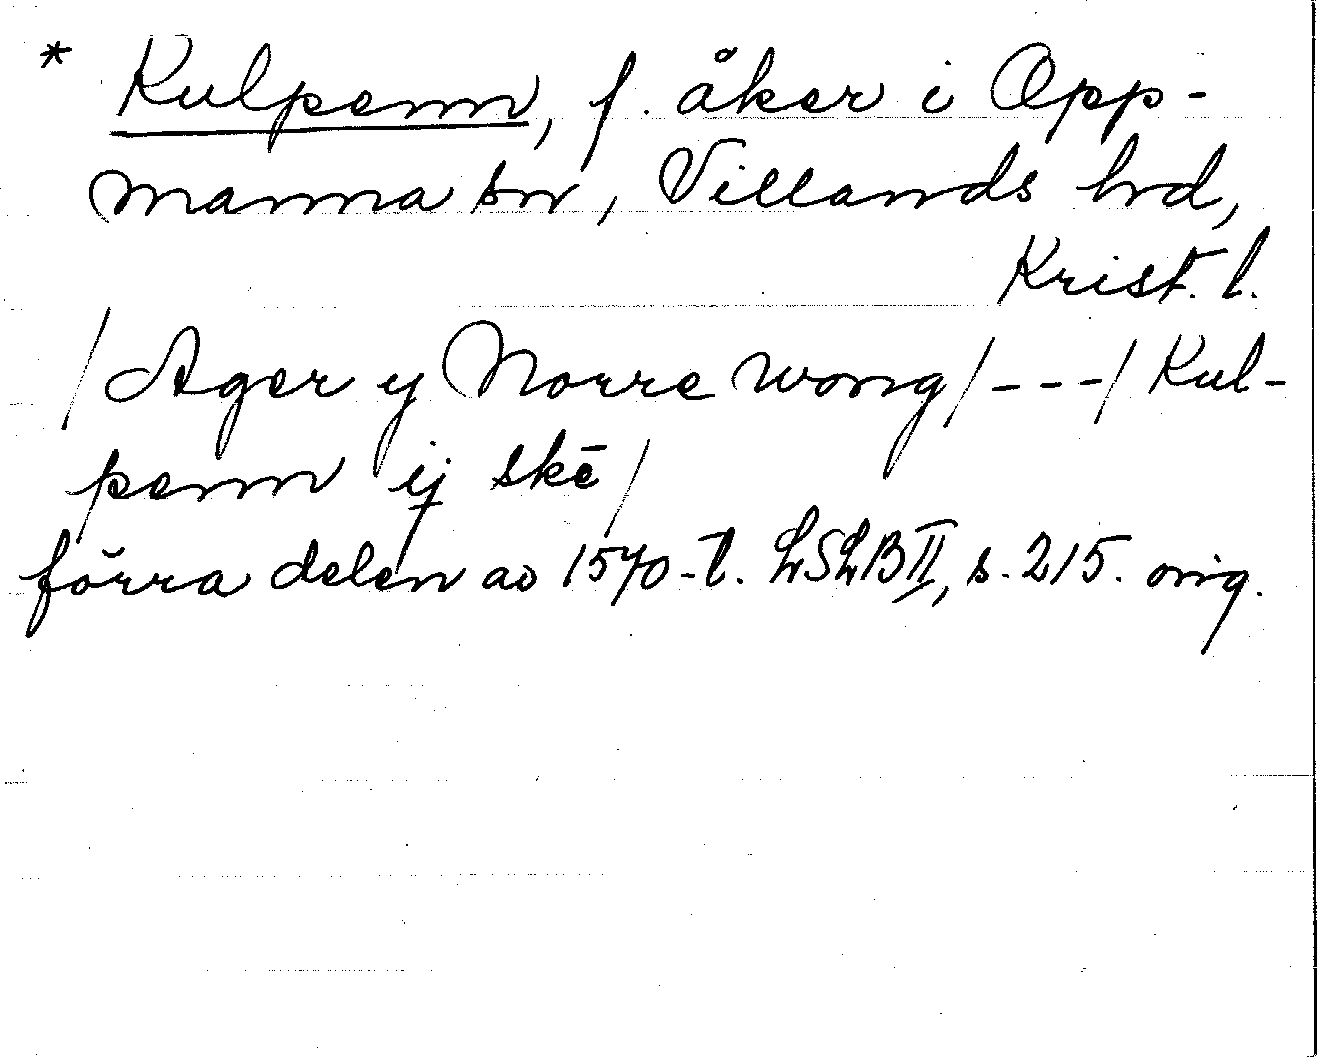 * Kulpenn, f. åker i Opp-
manna sn, Villands hrd,
Krist. l.
/Ager y Norre wong/---/Kul-
penn ij skē/
förra delen av 1570-t. LSLB II, s. 215. orig.